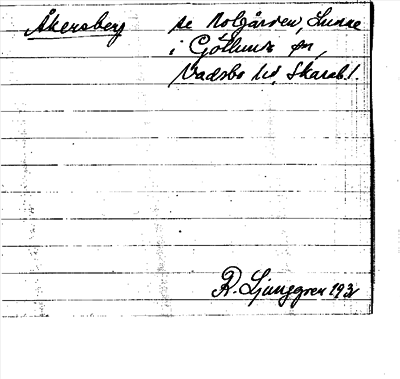 Åkersberg se Nolgården, Lunne
i Götlunda sn,
Vadsbo hd, Skarab.l.
R. Ljunggren 193